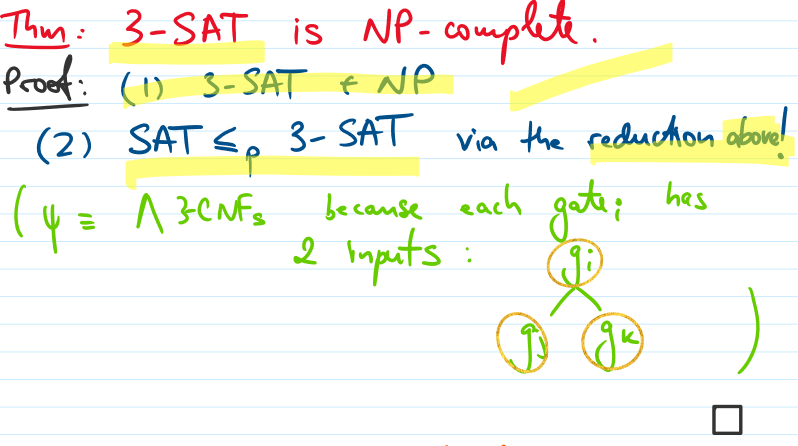 Thm: 3-SAT is NP-complete.
Proof: (1) 3-SAT ∈ NP
(2) SAT ≤p 3-SAT via the reduction above!
(ψ ≡ ⋀ 3-CNFs because each gate i has
2 inputs : gi
gj gk )
□